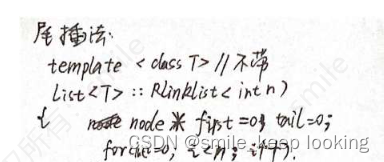 尾插法:
template <class T> //不带
List<T> :: Rlinklist<int n)
{ node * first =0; tail=0;
for(i=0; i<n; i++).
CSDN @smile_keep looking